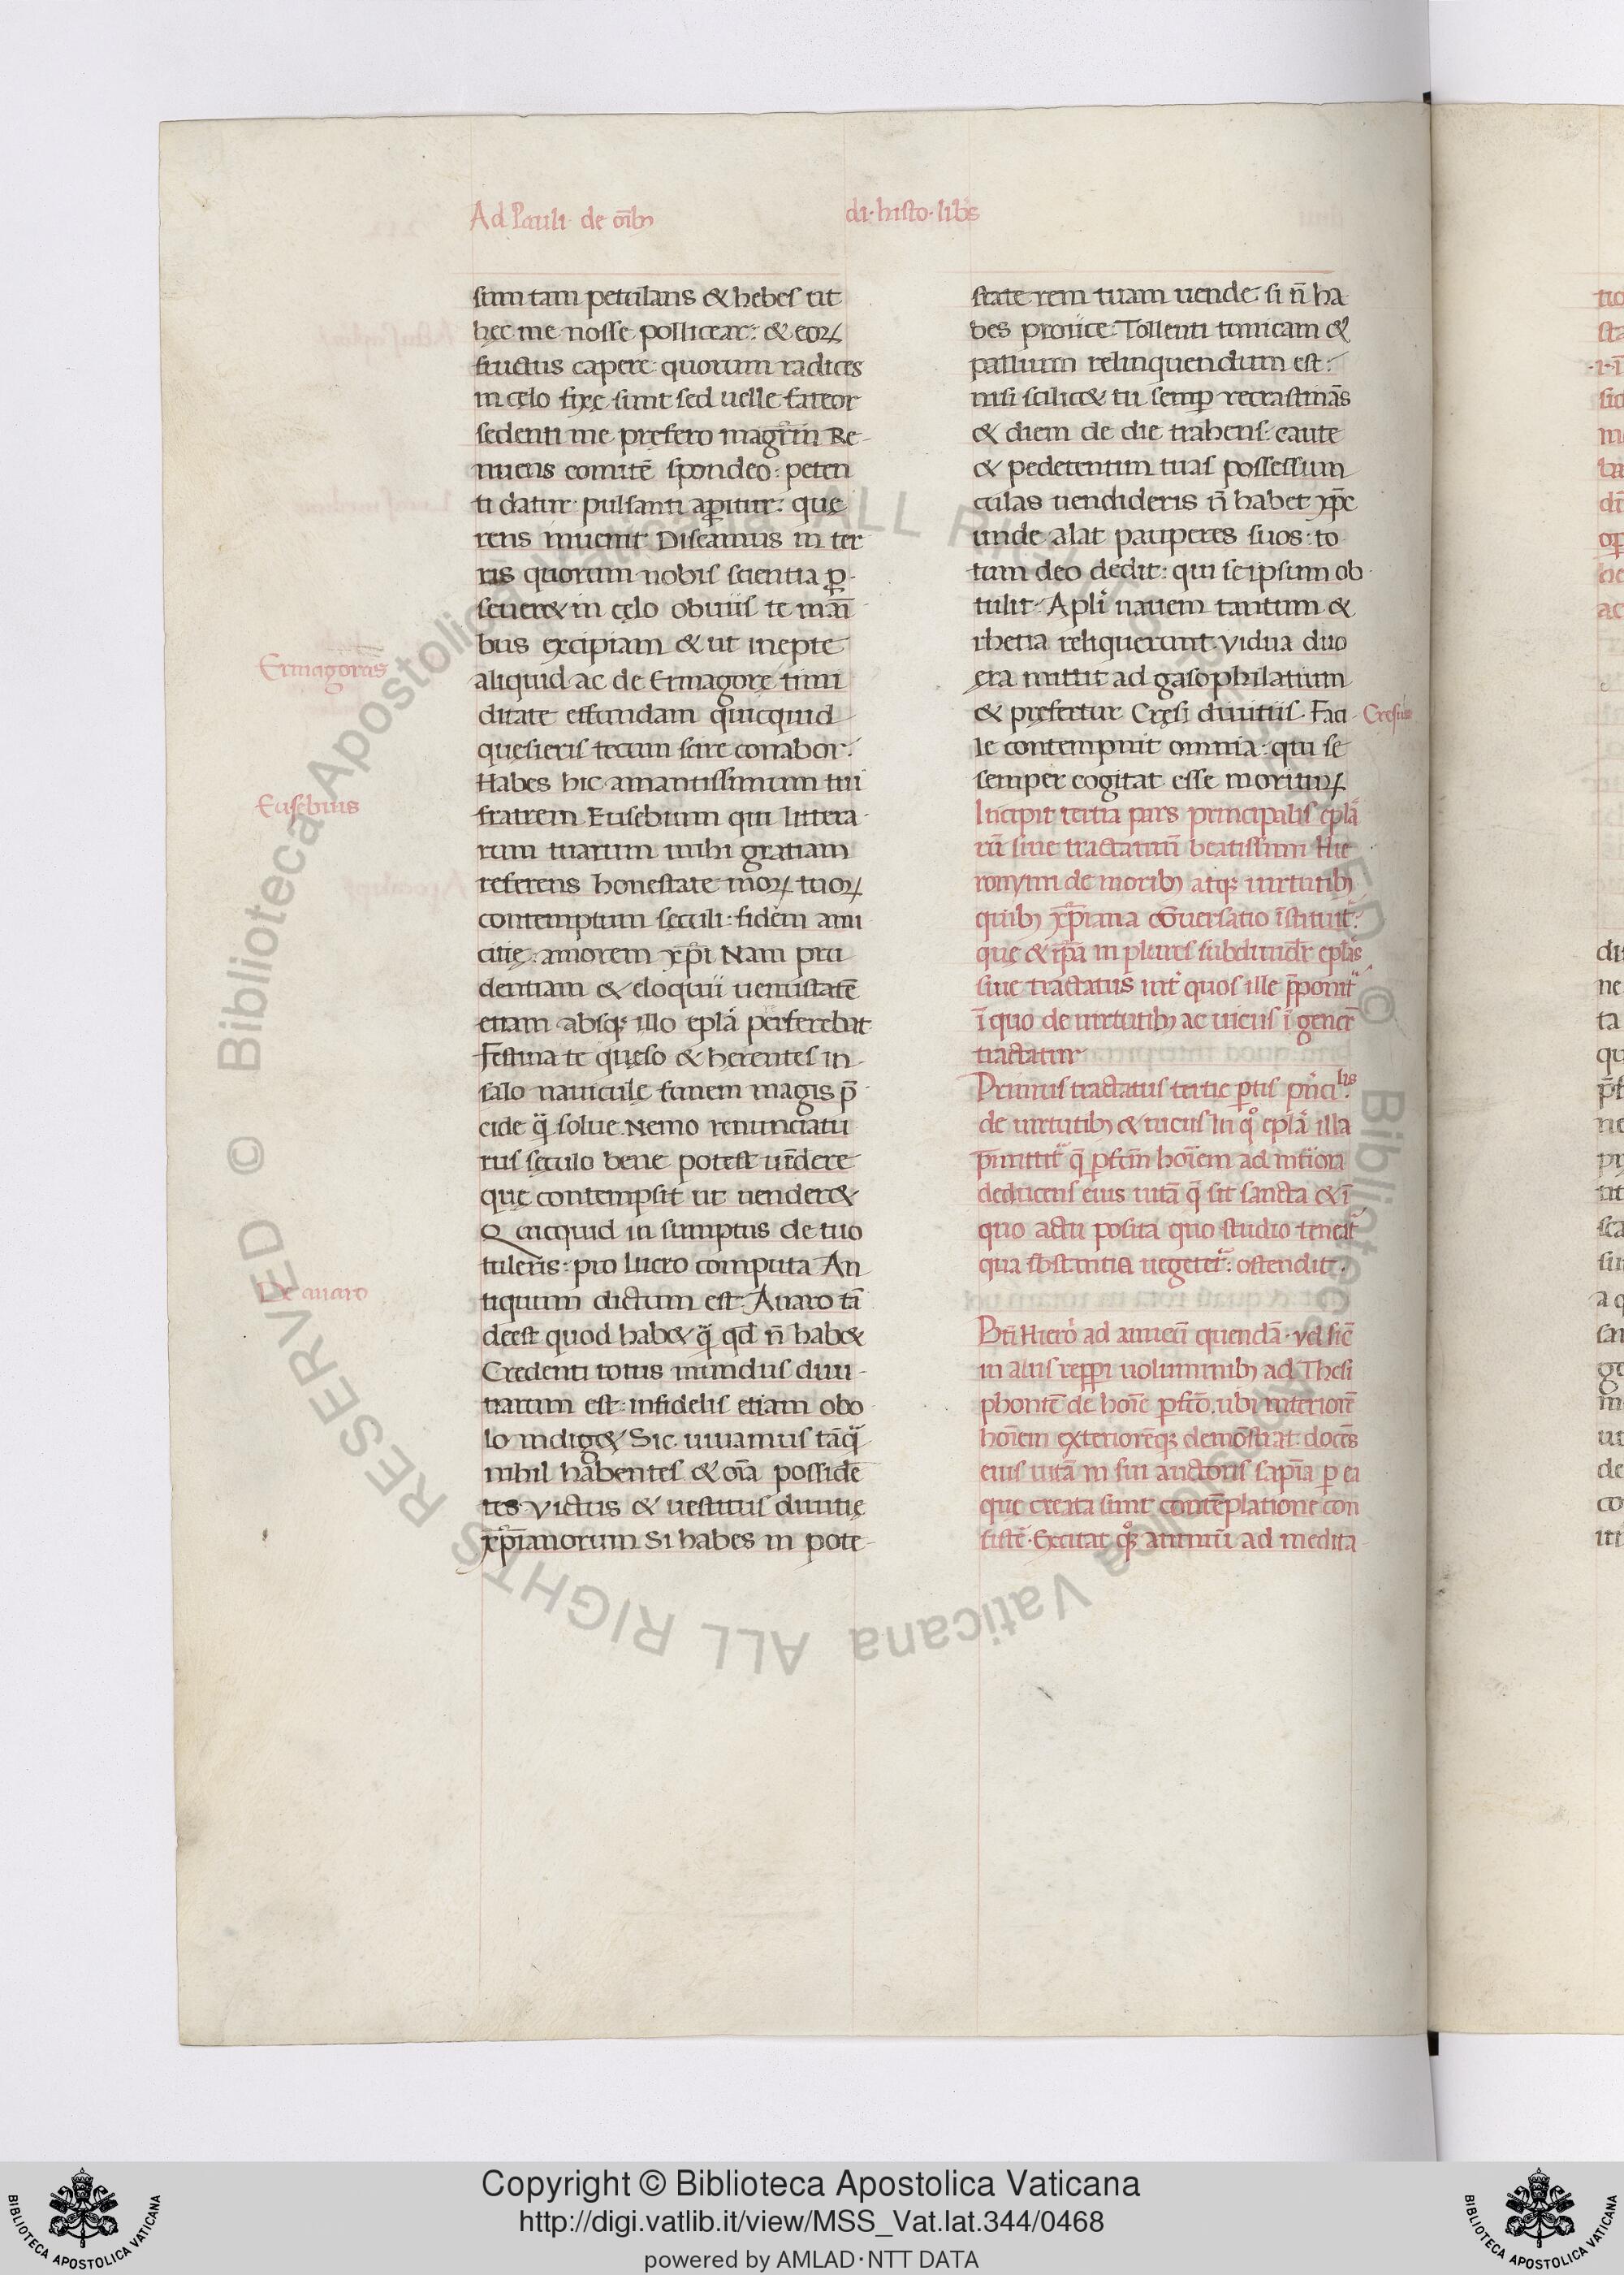 Ad Pauli· de oīb;
di·histo·lib᷒s
sum tam petulans & hebes ut
hęc me nosse pollicear: & eoꝝ
fructus capere quorum radices
in cęlo fixę sunt sed uelle fateor
sedenti me prefero magr̄m Re-
nuens comitē spondeo: peten
ti datur· pulsanti aꝑitur: quę
rens inuenit Discamus in ter
ris quorum nobis scientia ꝑ-
seuer& in cęlo obuiis te mani
bus excipiam & ut inepte
aliquid ac de Ermagorę timi
ditate effundam quicquid
quesieris tecum scire conabor·
Ermagoras
Habes hic amantissimum tui
fratrem Eusebium qui littera-
Eusebius
rum tuarum mihi gratiam
referens honestate moꝝ tuoꝝ
contemptum sęculi: fidem ami
citię: amorem xp̄i Nam pru
dentiam & eloquii uenustatē
etiam absq; illo epl̄a perferebat
Festina te queso & herentes in
salo nauiculę funem magis p̄
cide q̄ solue Nemo renunciatu
rus sęculo bene potest uēdere
que contempsit ut uender&
Quicquid in sumptus de tuo
tuleris: pro lucro computa An
tiquum dictum est: Auaro tā
De auaro
deest quod hab& q̄ qd̄ n̄ hab&
Credenti totus mundus diui-
tiarum est: infidelis etiam obo
lo indig& Sic uiuamus tāq̄
nihil habentes & oīa possidē
tes Victus & uestitus diuitię
xp̄ianorum Si habes in pote-
state rem tuam uende: si n̄ ha
bes proiice· Tollenti tunicam &
pallium relinquendum est:
nisi scilic& tu semꝑ recrastinās
& diem de die trahens: caute
& pedetentim tuas possessiun
culas uendideris n̄ habet xp̄c
unde alat pauperes suos: to
tum deo dedit: qui seipsum ob-
tulit· Apl̄i nauem tantum &
rhetia reliquerunt· Vidua duo
ęra mittit ad gasophilatium
& prefertur Cręsi diuitiis· Faci-
Cresus
le contempnit omnia: qui se
semper cogitat esse morituꝝ
Incipit tertia pars principalis epl̄a
rū siue tractatuū beatissimi Hie
ronymi de morib; atq; uirtutib;
quib; xp̄iana cōuersatio īstituit᷑:
quę & ip̄a in plures subdiuidit᷑ epl̄as
siue tractatus int᷑ quos ille p̄ponit᷑
ī quo de uirtutib; ac uiciis ī genere
tractatur
Primus tractatus tertie ꝑtis prīci lis
de uirtutib; & uiciis In qͦ epl̄a illa
p̄mittit᷑ q̄ ꝑfcm̄ hoīem ad īnt̄iora
deducens eius uitā q̄ sit sancta & ī
quo actu posita quo studio teneat᷑
qua sbstantia uegetet᷑: ostendit·
Btī Hierō ad amicū quendā· vel sic̄
in aliis repp̄i uoluminib; ad Thesi
phontē de hoīe ꝑfcō. ubi interiorē
hoīem exteriorēq; demōstrat: docēs
eius uitā in sui auctoris sapīa ꝑ ea
que creata sunt contēplatione con
sistē· Excitat qͦq; animū ad medita-
Copyright © Biblioteca Apostolica Vaticana
http://digi.vatlib.it/view/MSS_Vat.lat.344/0468
powered by AMLAD·NTT DATA
BIBLIOTECA APOSTOLICA VATICANA
BIBLIOTECA APOSTOLICA VATICANA